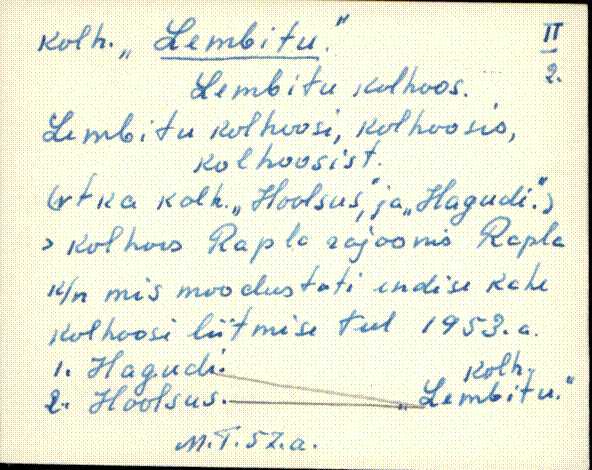 kolh. „Lembitu."
II
2.
Lembitu kolhoos.
Lembitu kolhoosi, kolhoosis,
kolhoosist.
(vt ka kolh. „Hoolsus," ja „Hagudi.")
> kolhoos Rapla rajoonis Rapla
k/n mis moodustati endise kahe
kolhoosi liitmise teel 1953.a.
1. Hagudi.
2. Hoolsus.
kolh.
„Lembitu."
M.T. 57.a.